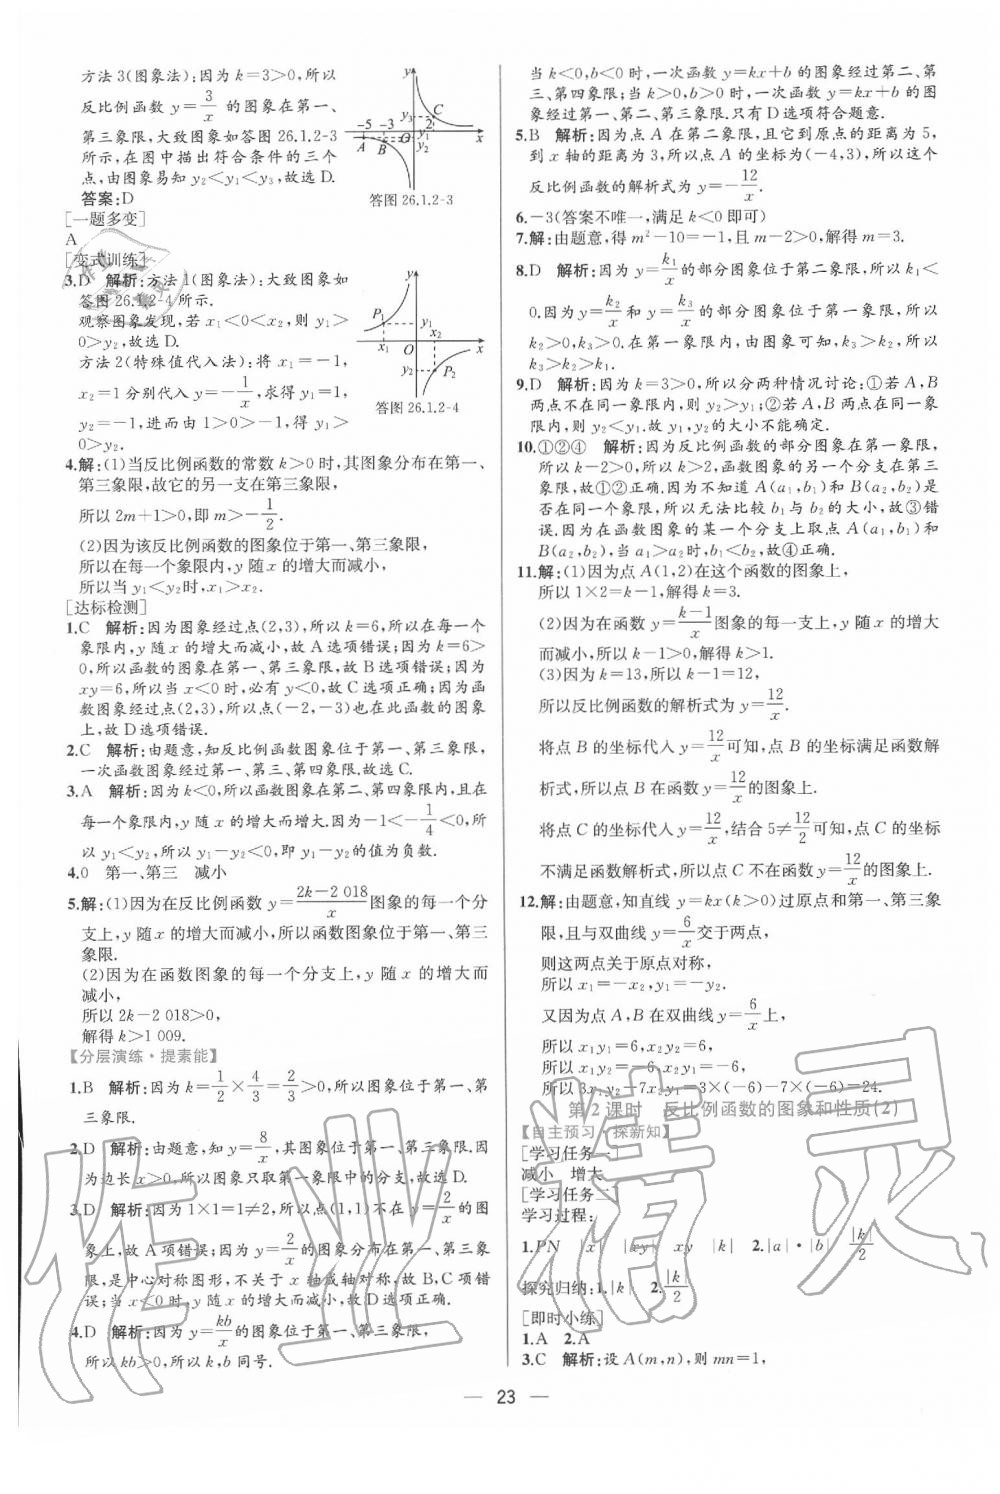 方法3(图象法):因为k=3>0,所以
反比例函数y=3/x 的图象在第一、
第三象限,大致图象如答图26.1.2-3
所示,在图中描出符合条件的三个
点,由图象易知y₂<y₁<y₃,故选D.
答案:D
答图26.1.2-3
[一题多变]
A
[变式训练]
3.D 解析:方法1(图象法):大致图象如
答图26.1.2-4所示.
观察图象发现,若x₁<0<x₂,则y₁>
0>y₂,故选D.
方法2(特殊值代入法):将x₁=-1,
x₂=1分别代入y=-1/x,求得y₁=1,
y₂=-1,进而由1>0>-1,得y₁>
0>y₂.
答图26.1.2-4
4.解:(1)当反比例函数的常数k>0时,其图象分布在第一、
第三象限,故它的另一支在第三象限,
所以2m+1>0,即m>-1/2.
(2)因为该反比例函数的图象位于第一、第三象限,
所以在每一个象限内,y随x的增大而减小,
所以当y₁<y₂时,x₁>x₂.
[达标检测]
1.C 解析:因为图象经过点(2,3),所以k=6,所以在每一个
象限内,y随x的增大而减小,故A选项错误;因为k=6>
0,所以函数的图象在第一、第三象限,故B选项错误;因为
xy=6,所以当x<0时,必有y<0,故C选项正确;因为函
数图象经过点(2,3),所以点(-2,-3)也在此函数的图象
上,故D选项错误.
2.C 解析:由题意,知反比例函数图象位于第一、第三象限,
一次函数图象经过第一、第三、第四象限.故选C.
3.A 解析:因为k<0,所以函数图象在第二、第四象限内,且在
每一个象限内,y随x的增大而增大.因为-1<-1/4<0,所
以y₁<y₂.所以y₁-y₂<0,即y₁-y₂的值为负数.
4.0 第一、第三 减小
5.解:(1)因为在反比例函数y=(2k-2 018)/x图象的每一个分
支上,y随x的增大而减小,所以函数图象位于第一、第三
象限.
(2)因为在函数图象的每一个分支上,y随x的增大而
减小,
所以2k-2 018>0,
解得k>1 009.
【分层演练·提素能】
1.B 解析:因为k=1/2×4/3=2/3>0,所以图象位于第一、第
三象限.
2.D 解析:由题意,知y=8/x,其图象位于第一、第三象限.因
为边长x>0,所以图象只取第一象限中的分支,故选D.
3.D 解析:因为1×1=1≠2,所以点(1,1)不在y=2/x的图
象上,故A项错误;因为y=2/x的图象分布在第一、第三象
限,是中心对称图形,不关于x轴成轴对称,故B,C项错
误;当x<0时,y随x的增大而减小,故D选项正确.
4.D 解析:因为y=kb/x的图象位于第一、第三象限,
所以kb>0,所以k,b同号.
当k<0,b<0时,一次函数y=kx+b的图象经过第二、第
三、第四象限;当k>0,b>0时,一次函数y=kx+b的图
象经过第一、第二、第三象限.只有D选项符合题意.
5.B 解析:因为点A在第二象限,且它到原点的距离为5,
到x轴的距离为3,所以点A的坐标为(-4,3),所以这个
反比例函数的解析式为y=-12/x.
6.-3(答案不唯一,满足k<0即可)
7.解:由题意,得m²-10=-1,且m-2>0,解得m=3.
8.D 解析:因为y=k₁/x的部分图象位于第二象限,所以k₁<
0.因为y=k₂/x和y=k₃/x的部分图象位于第一象限,所以
k₂>0,k₃>0.在第一象限内,由图象可知,k₃>k₂,所以
k₃>k₂>k₁.
9.D 解析:因为k=3>0,所以分两种情况讨论:①若A,B
两点不在同一象限内,则y₂>y₁;②若A,B两点在同一象
限内,则y₂<y₁.故y₁,y₂的大小不能确定.
10.①②④ 解析:因为反比例函数的部分图象在第一象限,
所以k-2>0,所以k>2,函数图象的另一个分支在第三
象限,故①②正确.因为不知道A(a₁,b₁)和B(a₂,b₂)是
否在同一个象限,所以无法比较b₁与b₂的大小,故③错
误.因为在函数图象的某一个分支上取点A(a₁,b₁)和
B(a₂,b₂),当a₁>a₂时,b₁<b₂,故④正确.
11.解:(1)因为点A(1,2)在这个函数的图象上,
所以1×2=k-1,解得k=3.
(2)因为在函数y=(k-1)/x图象的每一支上,y随x的增大
而减小,所以k-1>0,解得k>1.
(3)因为k=13,所以k-1=12,
所以反比例函数的解析式为y=12/x.
将点B的坐标代入y=12/x可知,点B的坐标满足函数解
析式,所以点B在函数y=12/x的图象上.
将点C的坐标代入y=12/x,结合5≠12/2可知,点C的坐标
不满足函数解析式,所以点C不在函数y=12/x的图象上.
12.解:由题意,知直线y=kx(k>0)过原点和第一、第三象
限,且与双曲线y=6/x交于两点,
则这两点关于原点对称,
所以x₁=-x₂,y₁=-y₂.
又因为点A,B在双曲线y=6/x上,
所以x₁y₁=6,x₂y₂=6,
所以3x₁y₂-7x₂y₁=-3×(-7)×6=24.
第2课时 反比例函数的图象和性质(2)
【自主预习·探新知】
[学习任务一]
减小 增大
[学习任务二]
学习过程:
1.PN |x| |xy| xy |k| 2.|a|·|b| |k|/2
探究归纳:1.|k| 2.|k|/2
[即时小练]
1.A 2.A
3.C 解析:设A(m,n),则mn=1,
— 23 —
作业精灵